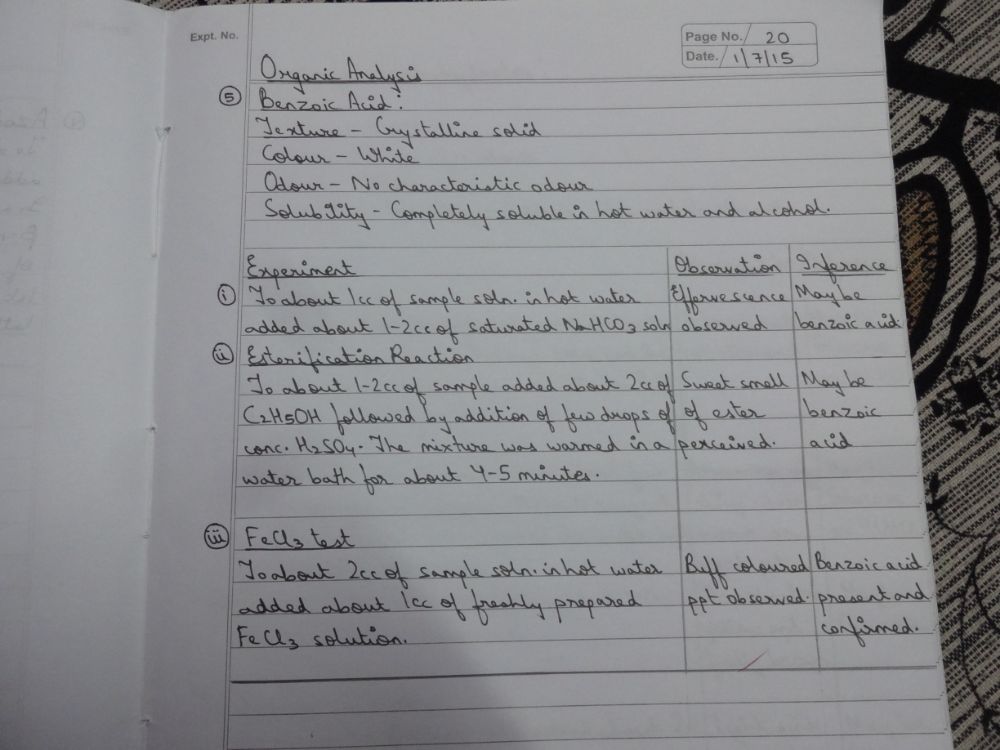 Expt. No.
Page No. 20
Date. 1/7/15
Organic Analysis
⑤ Benzoic Acid:
Texture - Crystalline solid
Colour - White
Odour - No characteristic odour
Solubility - Completely soluble in hot water and alcohol.
Experiment Observation Inference
ⓘ To about 1cc of sample soln. in hot water Effervescence May be
added about 1-2cc of saturated NaHCO3 soln observed benzoic acid
ⅱ Esterification Reaction
To about 1-2cc of sample added about 2cc of Sweet smell May be
C2H5OH followed by addition of few drops of of ester benzoic
conc. H2SO4. The mixture was warmed in a perceived. acid
water bath for about 4-5 minutes.
ⅲ FeCl3 test
To about 2cc of sample soln. in hot water Buff coloured Benzoic acid
added about 1cc of freshly prepared ppt observed. present and
FeCl3 solution. confirmed.